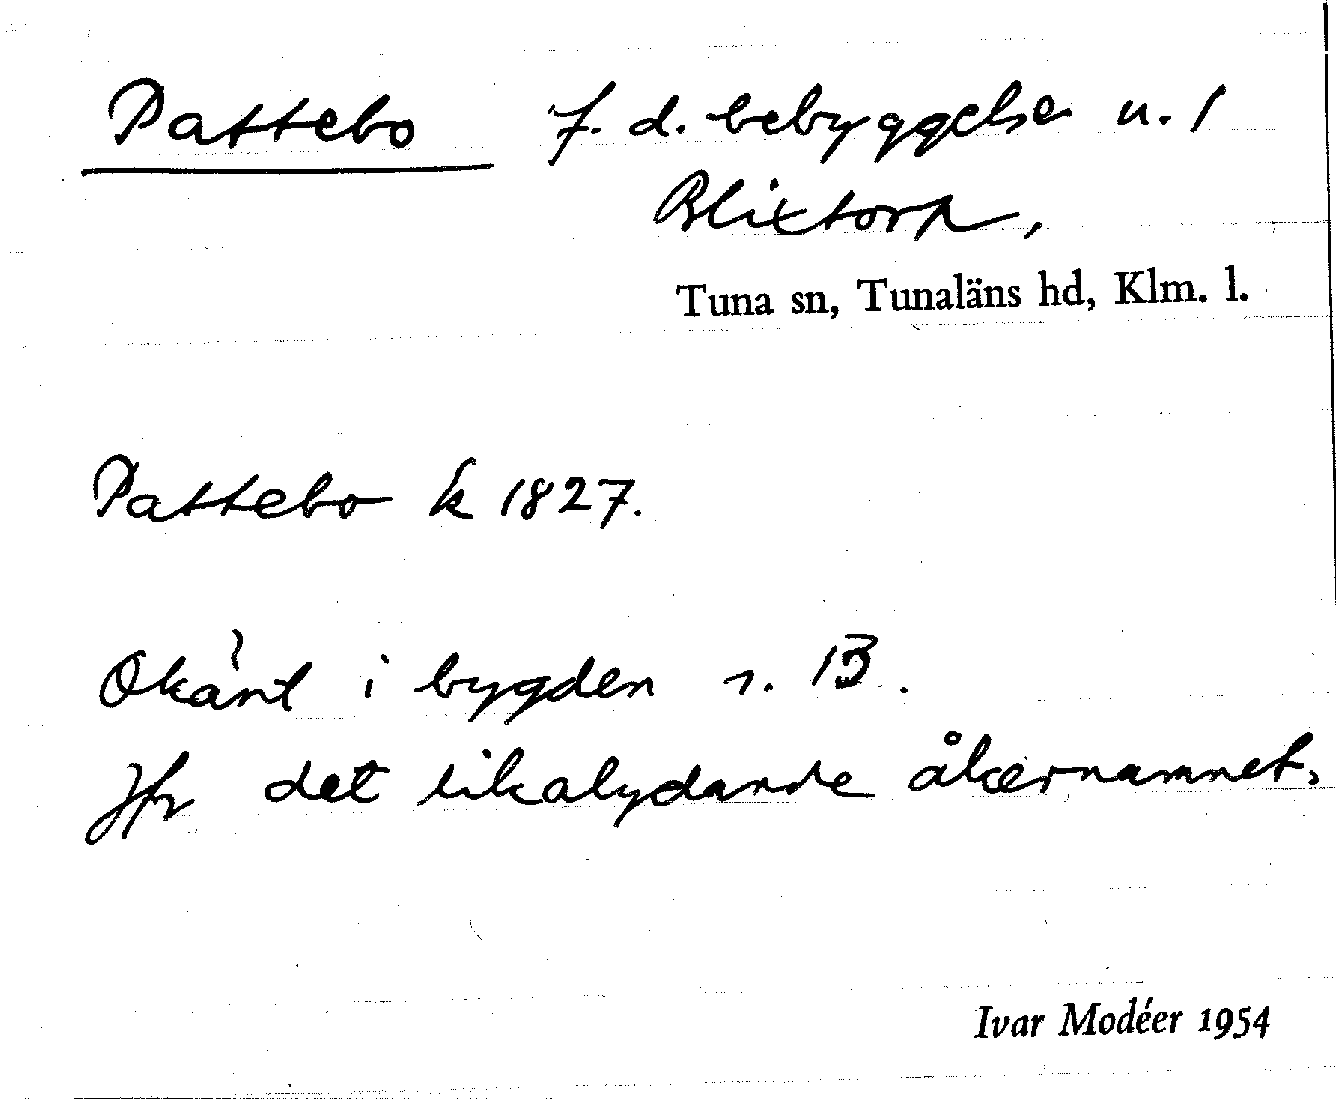 Pattebo f. d. bebyggelse u. 1
Blixtorp,
Tuna sn, Tunaläns hd, Klm. l.
Pattebo k 1827.
Okänt i bygden
Jfr det likalydande åkernamnet.
Ivar Modéer 1954